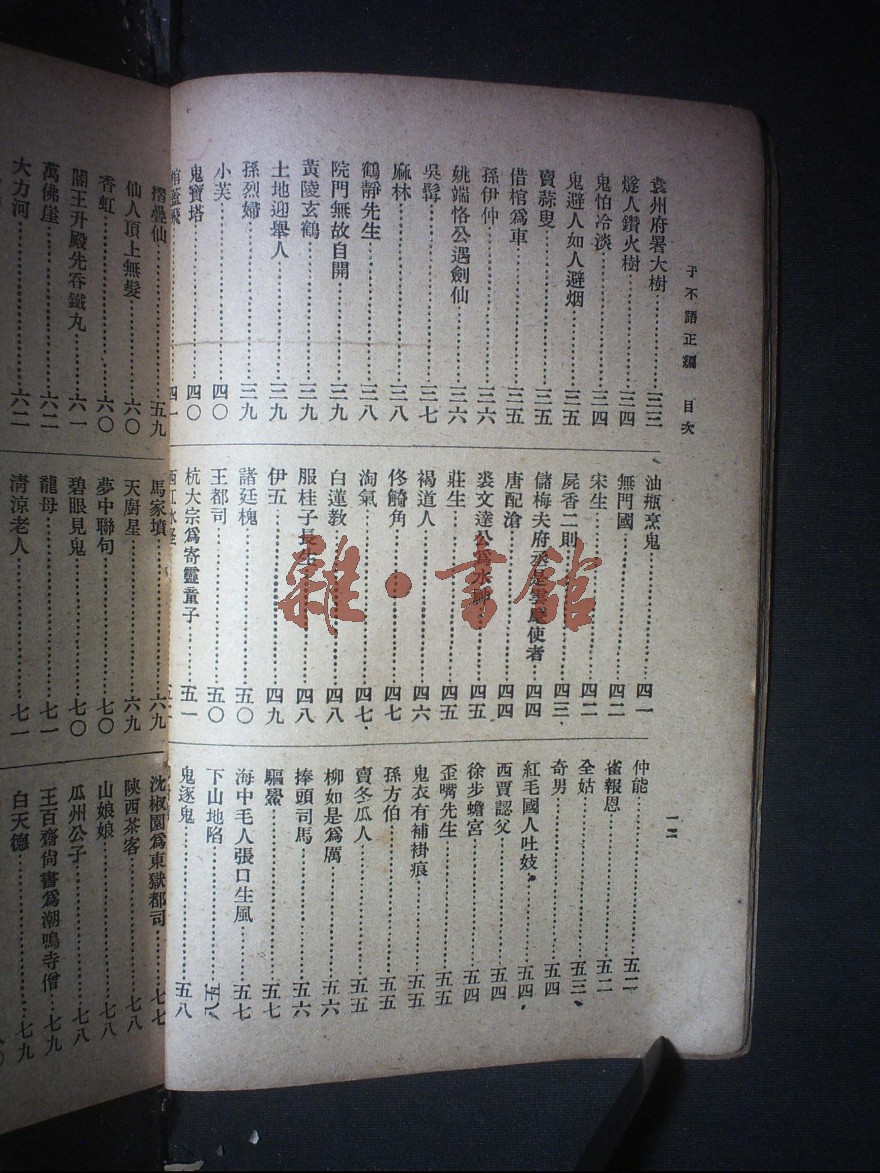 子不語正編 目次
一二
袁州府署大樹……三三
燧人鑽火樹……三四
鬼怕冷淡……三四
鬼避人如人避烟……三五
賣蒜叟……三五
借棺爲車……三五
孫伊仲……三六
姚端恪公遇劍仙……三六
吳髯……三七
麻林……三八
鶴靜先生……三八
院門無故自開……三九
黃陵玄鶴……三九
土地迎舉人……三九
孫烈婦……三九
小芙……四〇
鬼寶塔……四〇
棺蓋飛……四一
油瓶烹鬼……四一
無門國……四二
宋生……四二
屍香二則……四三
儲梅夫府丞是雲麾使者……四四
唐配滄……四四
裘文達公爲水神……四五
莊生……四五
褐道人……四六
佟觭角……四七
淘氣……四七
白蓮教……四八
服桂子長生……四八
伊五……四九
諸廷槐……五〇
王都司……五〇
杭大宗爲寄靈童子……五一
西江水怪
仲能……五二
雀報恩……五二
全姑……五三
奇男……五四
紅毛國人吐妓……五四
西賈認父……五四
徐步蟾宮……五四
歪嘴先生……五五
鬼衣有補褂痕……五五
孫方伯……五五
賣冬瓜人……五五
柳如是爲厲……五六
捧頭司馬……五六
驅鱟……五七
海中毛人張口生風……五七
下山地陷……五八
鬼逐鬼……五八
摺疊仙……五九
仙人頂上無髮……六〇
香虹……六〇
關王升殿先吞鐵丸……六一
萬佛崖……六二
大力河……六二
馬家墳……六九
天廚星……六九
夢中聯句……七〇
碧眼見鬼……七〇
龍母……七一
清涼老人……七一
沈椒園爲東獄都司……七七
陝西茶客……七八
山娘娘……七八
瓜州公子……七八
王百齋尙書爲潮鳴寺僧……七九
白天德……七九
雜·書館